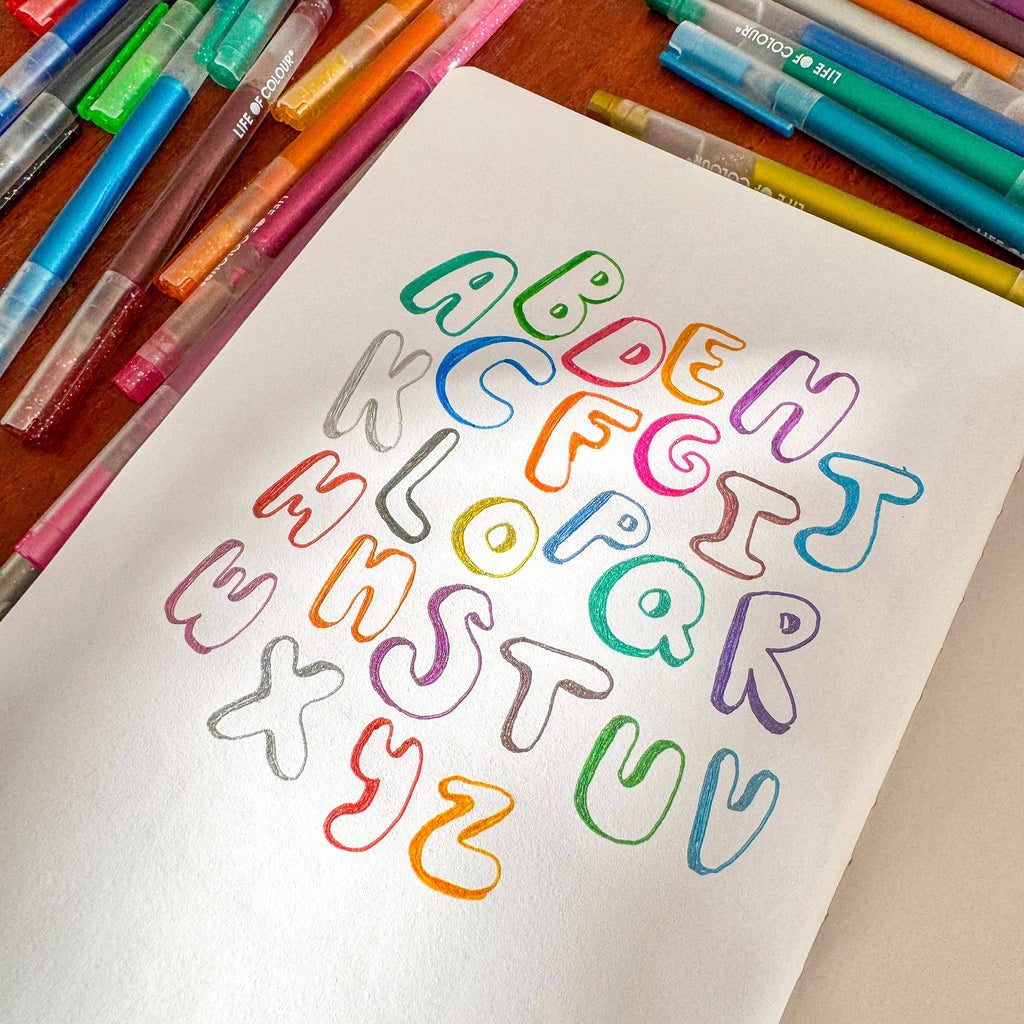 LIFE OF COLOUR
LIFE OF COLOUR
LIFE OF COLOUR
A B D E H
K C F G I J
M L O P Q R
W N S T U V
X Y Z